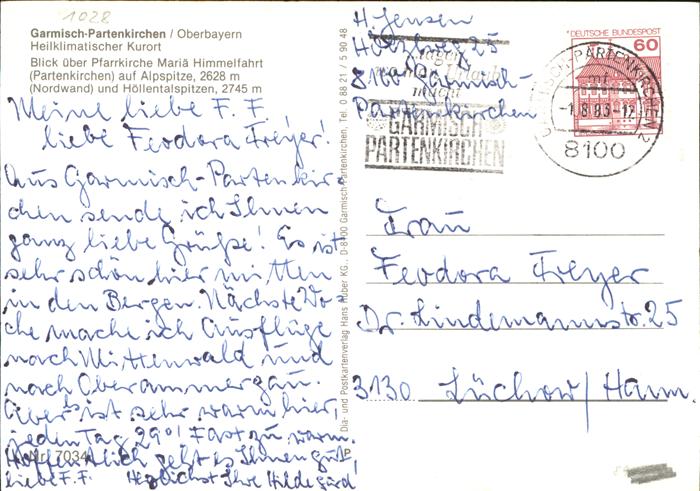 1028
Garmisch-Partenkirchen / Oberbayern
Heilklimatischer Kurort
Blick über Pfarrkirche Mariä Himmelfahrt
(Partenkirchen) auf Alpspitze, 2628 m
(Nordwand) und Höllentalspitzen, 2745 m
Meine liebe F. F.
liebe Feodora Freyer!
Aus Garmisch-Partenkir-
chen sende ich Ihnen
ganz liebe Grüße! Es ist
sehr schön hier mitten
in den Bergen. Nächste Wo-
che mache ich Ausflüge
nach Mittenwald und
nach Oberammergau.
Aber es ist sehr warm hier,
jeden Tag 29°! Fast zu warm.
Hoffentlich geht es Ihnen gut
liebe F.F. Herzlichst Ihre Hildegard!
Nr. 7034
Dia- und Postkartenverlag Hans Huber KG., D-8100 Garmisch-Partenkirchen, Tel. 0 88 21 / 5 90 48
H. Jensen
25
8100 Garmisch-
Partenkirchen
GARMISCH
PARTENKIRCHEN
DEUTSCHE BUNDESPOST
60
GARMISCH-PARTENKIRCHEN 2
mf
-1.8.83-12
8100
Frau
Feodora Freyer
Dr. Lindemannstr. 25
3130 Lüchow / Hann.